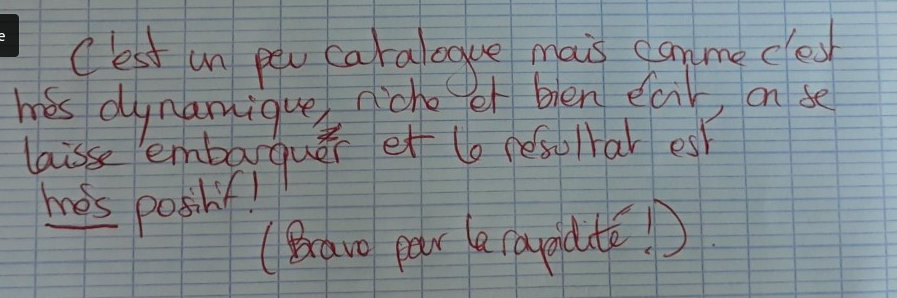 C'est un peu catalogue mais comme c'est
très dynamique, riche et bien écrit, on se
laisse embarquer et le résultat est
très positif !
(Bravo pour la rapidité !)